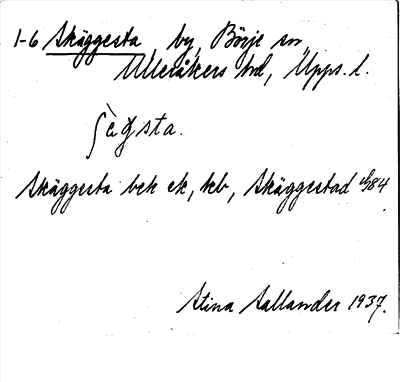 1-6 Skäggesta, by, Börje sn,
Ulleråkers hd, Upps. l.
Skäggesta bek ek, kb, Skäggestad
Stina Sallander 1937.